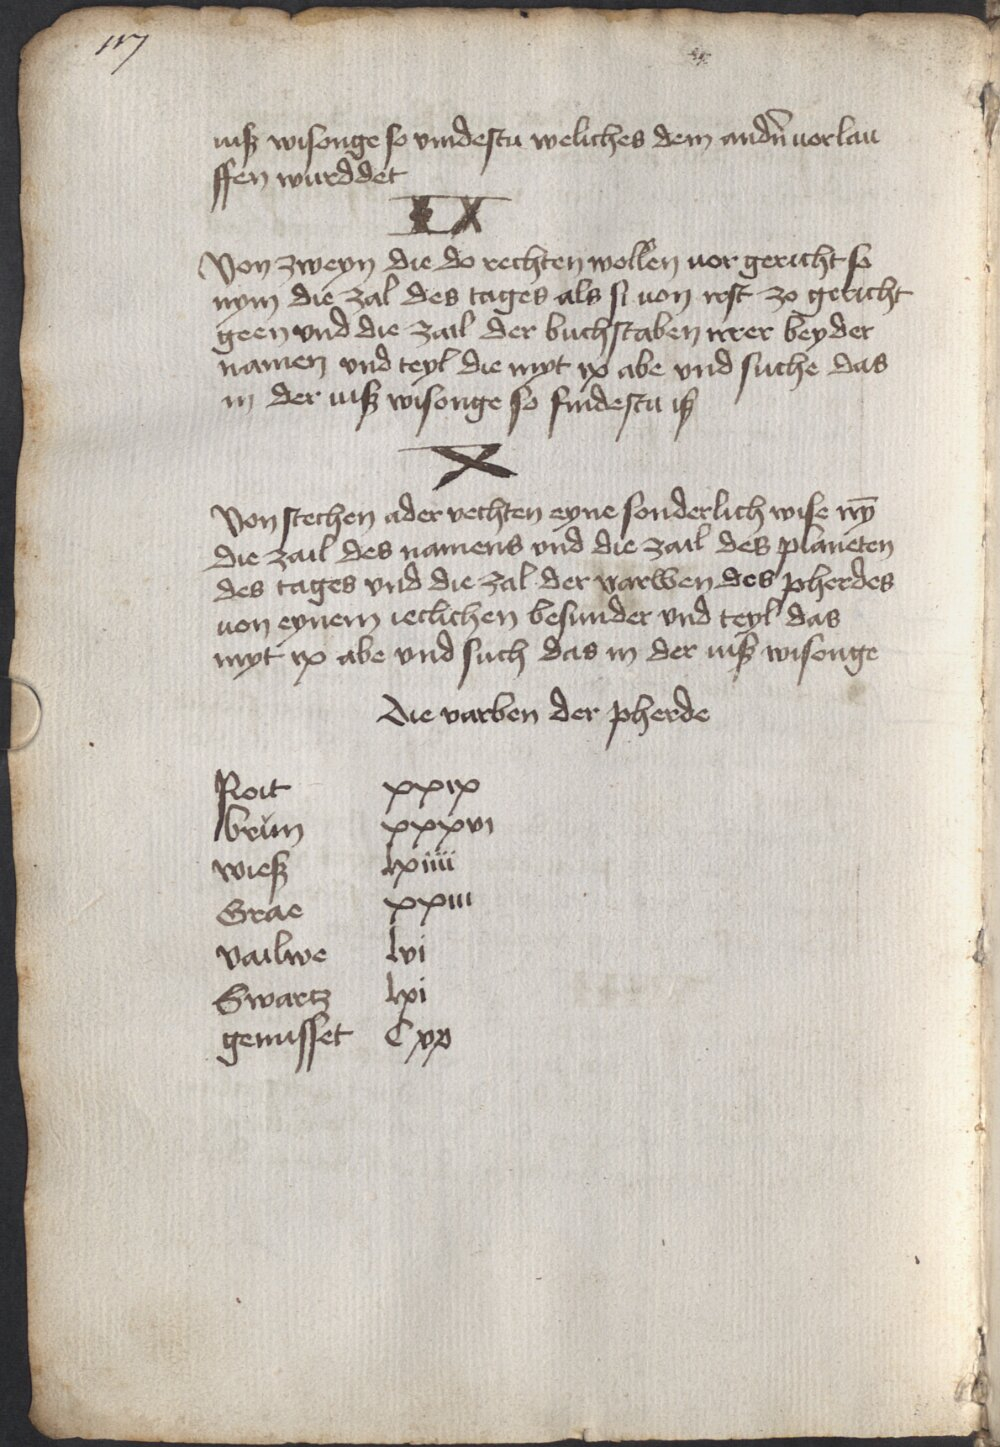 117
uiſz wisonge so vindestu weliches dem andn̄ uorlau
ffen wurddet
IX
Von zweyn die do rechten wollen uor gericht so
nym die zal des tages als si uon erst zo gericht
geen vnd die zail der buchstaben irer beyder
namen vnd teyl die myt ix abe vnd suche das
in der uiſz wisonge so findestu iſz
X
Von stechen ader vechten eyne sonderlich wise ny̅
die zail des namens vnd die zail des planeten
des tages vnd die zal der varwen des pherdes
uon eynem ietlichen besunder vnd teyl das
myt ix abe vnd such das in der uiſz wisonge
Die varben der pherde
Roit xxix
brun xxxvi
wieſz lxiiii
Grae xxiii
vailwe lvi
Swartz lxi
gemisset C xx